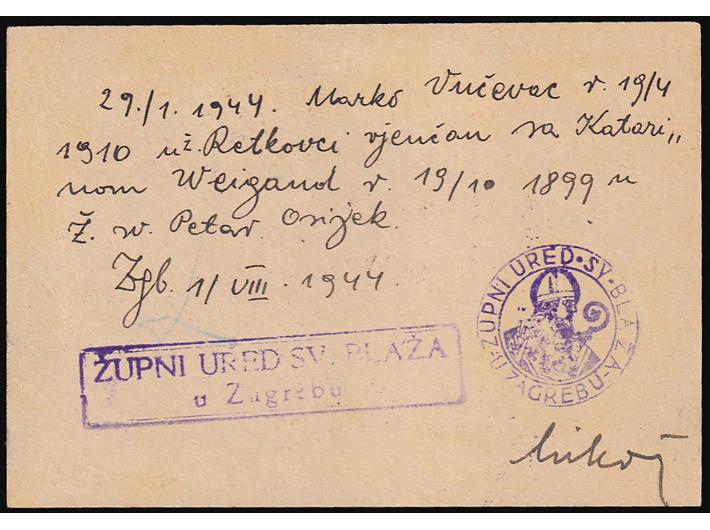 29./1. 1944. Marko Vučevac r. 19/4
1910 u ž. Retkovci vjenčan sa Katari„
nom Weigand r. 19/10 1899 u
Ž. sv. Petar Osijek.
Zgb. 1/VIII. 1944.
ŽUPNI URED SV. BLAŽA
u Zagrebu
ŽUPNI URED • SV • BLAŽA •
U ZAGREBU